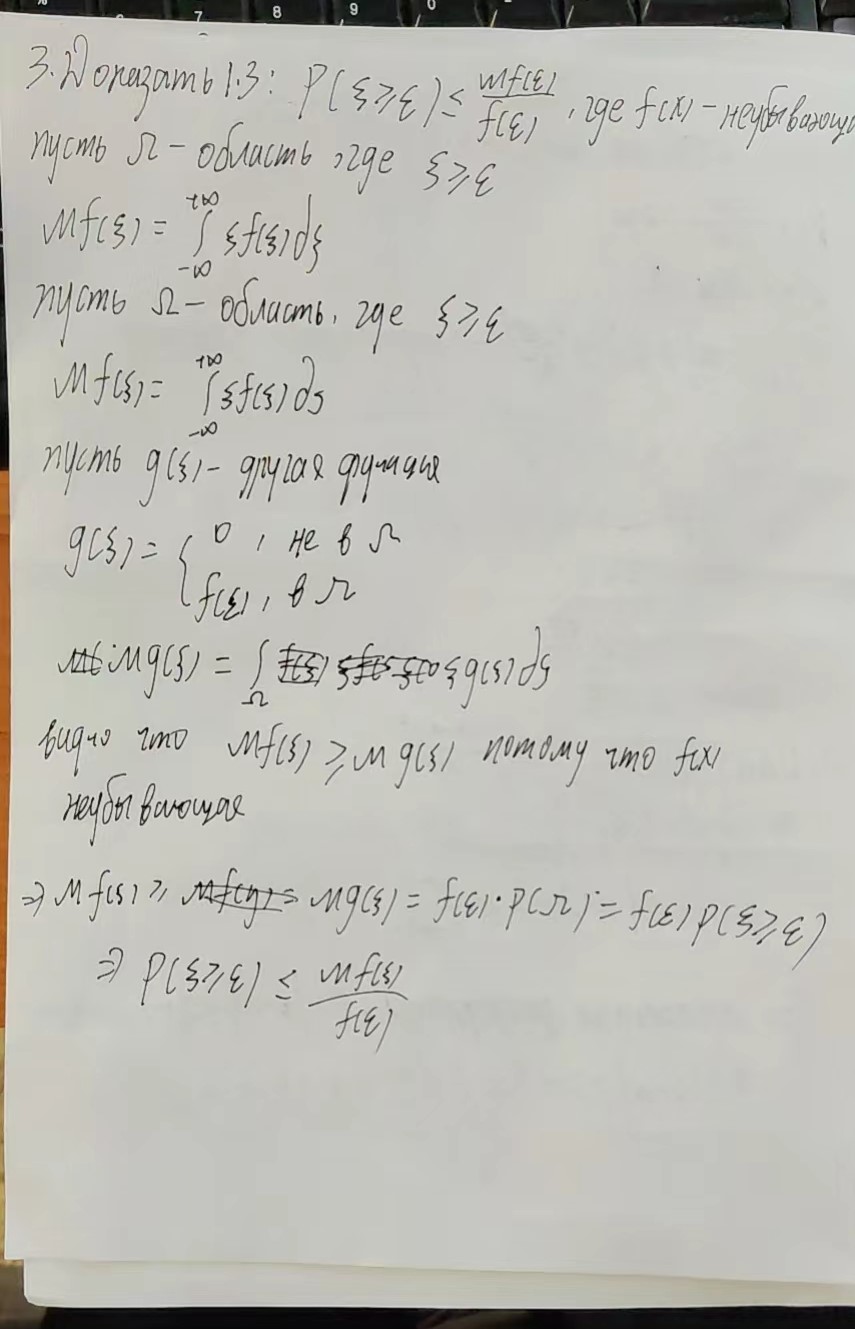 7 8 9 0
3. Доказать 1.3: P(ξ⩾ε) ≤ Mf(ξ)/f(ε), где f(x) – неубывающ
пусть Ω – область, где ξ⩾ε
Mf(ξ) = ∫_{-∞}^{+∞} ξf(ξ)dξ
пусть Ω – область, где ξ⩾ε
Mf(ξ) = ∫_{-∞}^{+∞} ξf(ξ)dξ
пусть g(ξ) – другая функция
g(ξ) = { 0, не в Ω
f(ε), в Ω
Mg(ξ) = ∫_Ω ξg(ξ)dξ
видно что Mf(ξ) ⩾ Mg(ξ) потому что f(x)
неубывающая
⇒ Mf(ξ) ⩾ Mg(ξ) = f(ε)·P(Ω) = f(ε)P(ξ⩾ε)
⇒ P(ξ⩾ε) ≤ Mf(ξ)/f(ε)